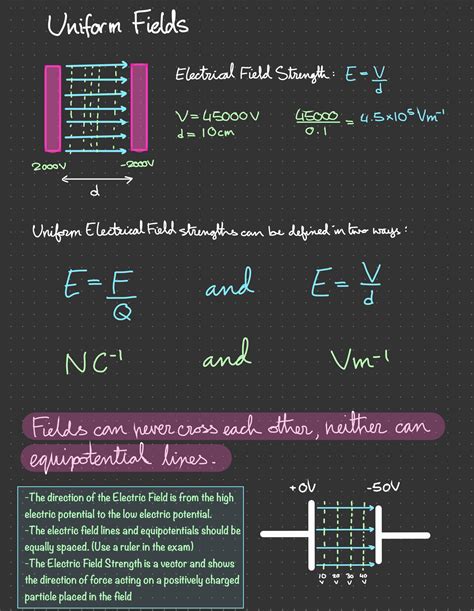 Uniform Fields
Electrical Field Strength: E = V/d
V = 45000V
d = 10cm
45000/0.1 = 4.5×10⁵ Vm⁻¹
2000V
-2000V
d
Uniform Electrical Field strengths can be defined in two ways:
E = F/Q and E = V/d
NC⁻¹ and Vm⁻¹
Fields can never cross each other, neither can
equipotential lines.
-The direction of the Electric Field is from the high
electric potential to the low electric potential.
-The electric field lines and equipotentials should be
equally spaced. (Use a ruler in the exam)
-The Electric Field Strength is a vector and shows
the direction of force acting on a positively charged
particle placed in the field
+0V
-50V
10 20 30 40
V V V V